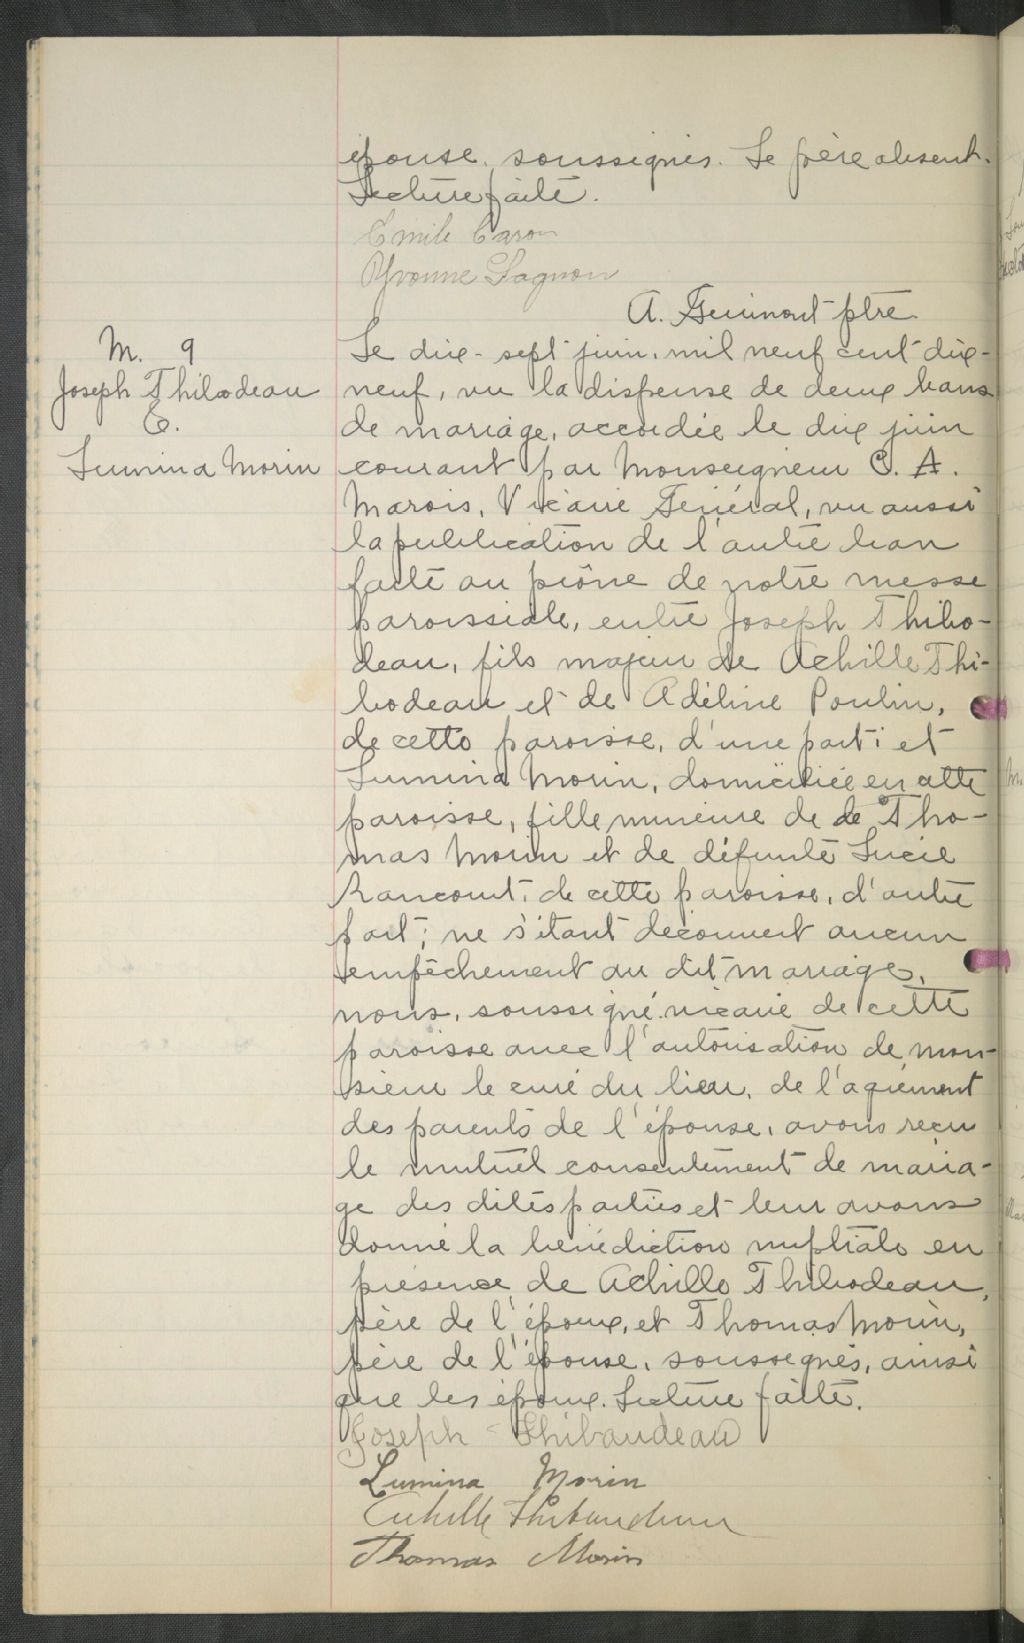 épouse, soussignés. Le père absent.
Lecture faite.
Emile Caron
Yvonne Gagnon
A. Guimont ptre
M. 9
Joseph Thibodeau
&
Lumina Morin
Le dix-sept juin, mil neuf cent dix-
neuf, vu la dispense de deux bans
de mariage, accordée le dix juin
courant par Monseigneur C. A.
Marois, Vicaire Général, vu aussi
la publication de l'autre ban
faite au prône de notre messe
paroissiale, entre Joseph Thibo-
deau, fils majeur de Achille Thi-
bodeau et de Adéline Poulin,
de cette paroisse, d'une part; et
Lumina Morin, domiciliée en cette
paroisse, fille mineure de de Tho-
mas Morin et de défunte Lucie
Rancourt, de cette paroisse, d'autre
part; ne s'étant découvert aucun
empêchement au dit mariage,
nous, soussigné, vicaire de cette
paroisse avec l'autorisation de mon-
sieur le curé du lieu, de l'agrément
des parents de l'épouse, avons reçu
le mutuel consentement de maria-
ge des dites parties et leur avons
donné la bénédiction nuptiale en
présence de Achille Thibodeau,
père de l'époux, et Thomas Morin,
père de l'épouse, soussignés, ainsi
que les époux. Lecture faite.
Joseph Thibaudeau
Lumina Morin
Achille Thibaudeau
Thomas Morin